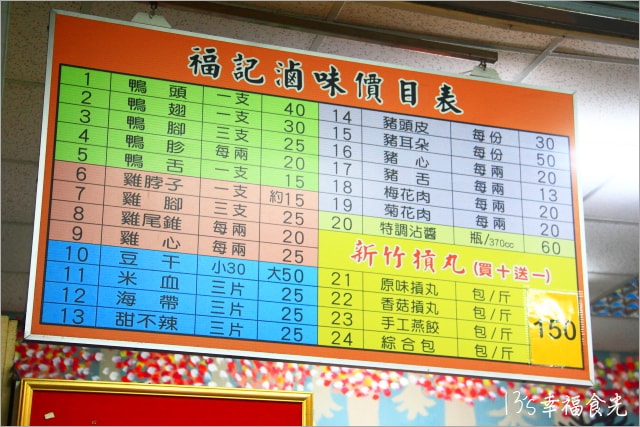 福記滷味價目表
1 鴨頭 一支 40
2 鴨翅 一支 30
3 鴨腳 三支 25
4 鴨胗 每兩 20
5 鴨舌 一支 15
6 雞脖子 一支 約15
7 雞腳 三支 25
8 雞尾錐 每兩 20
9 雞心 每兩 25
10 豆干 小30 大50
11 米血 三片 25
12 海帶 三片 25
13 甜不辣 三片 25
14 豬頭皮 每份 30
15 豬耳朵 每份 50
16 豬心 每兩 20
17 豬舌 每兩 20
18 梅花肉 每兩 13
19 菊花肉 每兩 20
20 特調沾醬 瓶/370cc 60
新竹摃丸(買十送一)
21 原味摃丸 包/斤
22 香菇摃丸 包/斤
23 手工燕餃 包/斤
24 綜合包 包/斤
150
135幸福食光